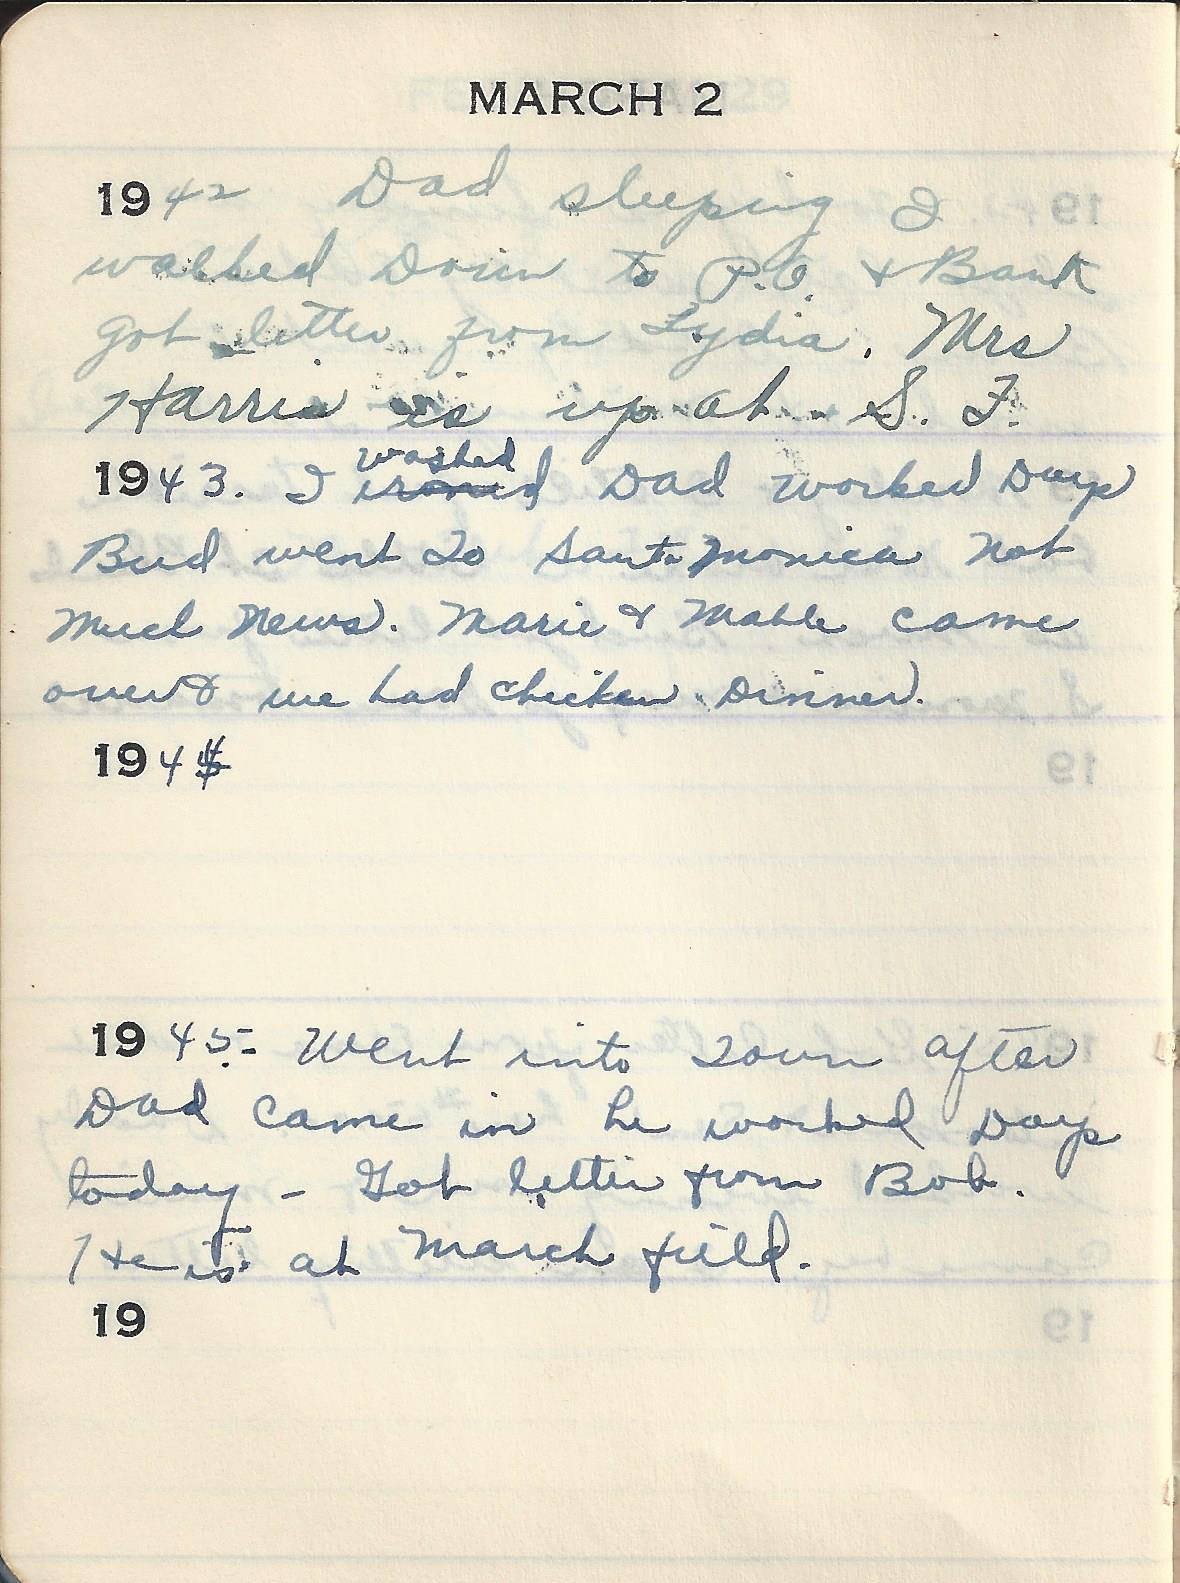 MARCH 2
1942 Dad sleeping I
walked Down to P.O. & Bank
got letter from Lydia. Mrs
Harris is up at S. F.
washed
1943. I ironed Dad worked Days
Bud went To Santa Monica Not
Much News. Marie & Mable came
over & we had chicken Dinner.
1944
1945- Went into Town after
Dad came in he worked Days
today - Got letter from Bob.
He is at March field.
19